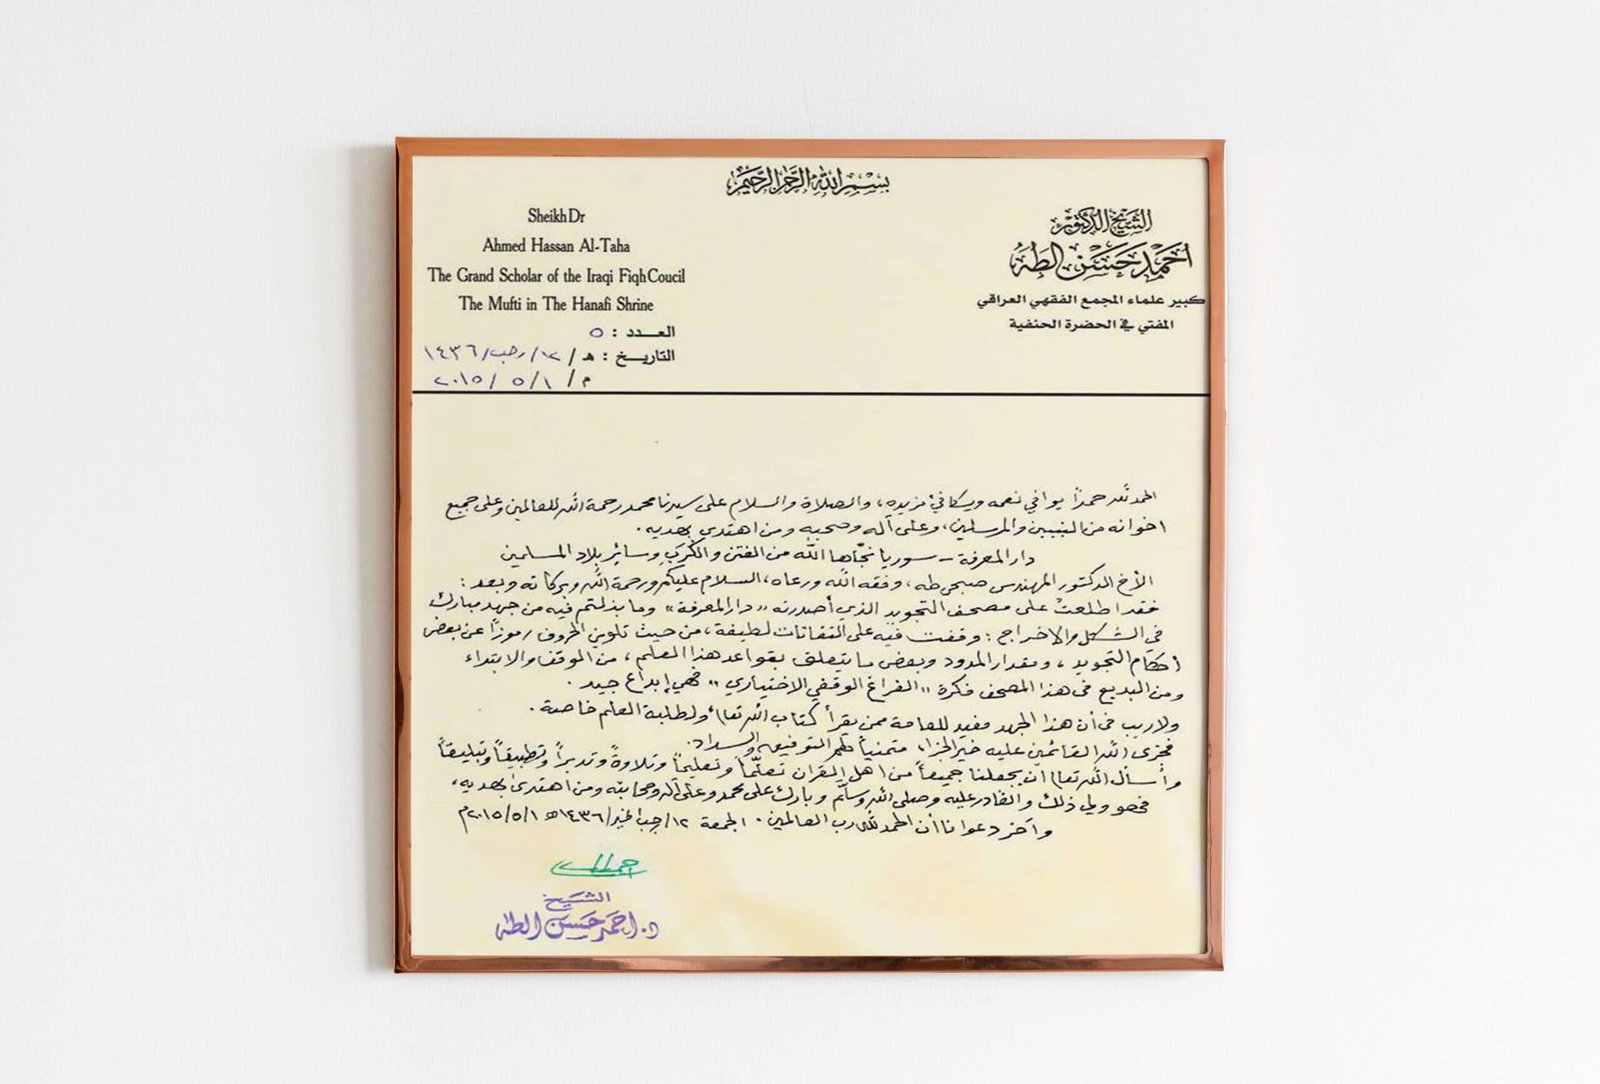 بسم الله الرحمن الرحيم
الشيخ الدكتور
احمد حسن الطه
كبير علماء المجمع الفقهي العراقي
المفتي في الحضرة الحنفية
Sheikh Dr
Ahmed Hassan Al-Taha
The Grand Scholar of the Iraqi Fiqh Coucil
The Mufti in The Hanafi Shrine
العدد : ٥
التاريخ : هـ / ١٢/رجب/١٤٣٦
م / ٢٠١٥/٥/١
الحمد لله حمدًا يوافي نعمه ويكافئ مزيده، والصلاة والسلام على سيدنا محمد رحمة الله للعالمين وعلى جميع
اخوانه من النبيين والمرسلين، وعلى آله وصحبه ومن اهتدى بهديه.
دار المعرفة - سوريا نجّاها الله من الفتن والكُرَبِ وسائرِ بلاد المسلمين
الأخ الدكتور المهندس صبحي طه، وفقه الله ورعاه، السلام عليكم ورحمة الله وبركاته وبعد:
فقد اطلعتُ على مصحف التجويد الذي أصدرته «دار المعرفة» وما بذلتم فيه من جهد مبارك
في الشكل والاخراج: وقفت فيه على التفاتات لطيفة، من حيث تلوين الحروف رموزاً عن بعض
أحكام التجويد، ومقدار المدود وبعض ما يتعلق بقواعد هذا العلم، من الوقف والابتداء
ومن البديع في هذا المصحف فكرة «الفراغ الوقفي الاختياري» فهي إبداع جيد.
ولا ريب في أن هذا الجهد مفيد للعامة ممن يقرأ كتاب الله تعالى، ولطلبة العلم خاصة.
فجزى الله القائمين عليه خير الجزاء متمنياً لهم التوفيق والسداد.
وأسأل الله تعالى ان يجعلنا جميعاً من اهل القرآن تعلّماً وتعليماً وتلاوةً وتدبراً وتطبيقاً وتبليغاً
فهو ولي ذلك والقادر عليه وصلى الله وسلّم وبارك على محمد وعلى آله وصحابته ومن اهتدى بهديه،
وآخر دعوانا أن الحمد لله رب العالمين. الجمعة ١٢/رجب الخير/١٤٣٦هـ ٢٠١٥/٥/١م
الشيخ
د. احمد حسن الطه